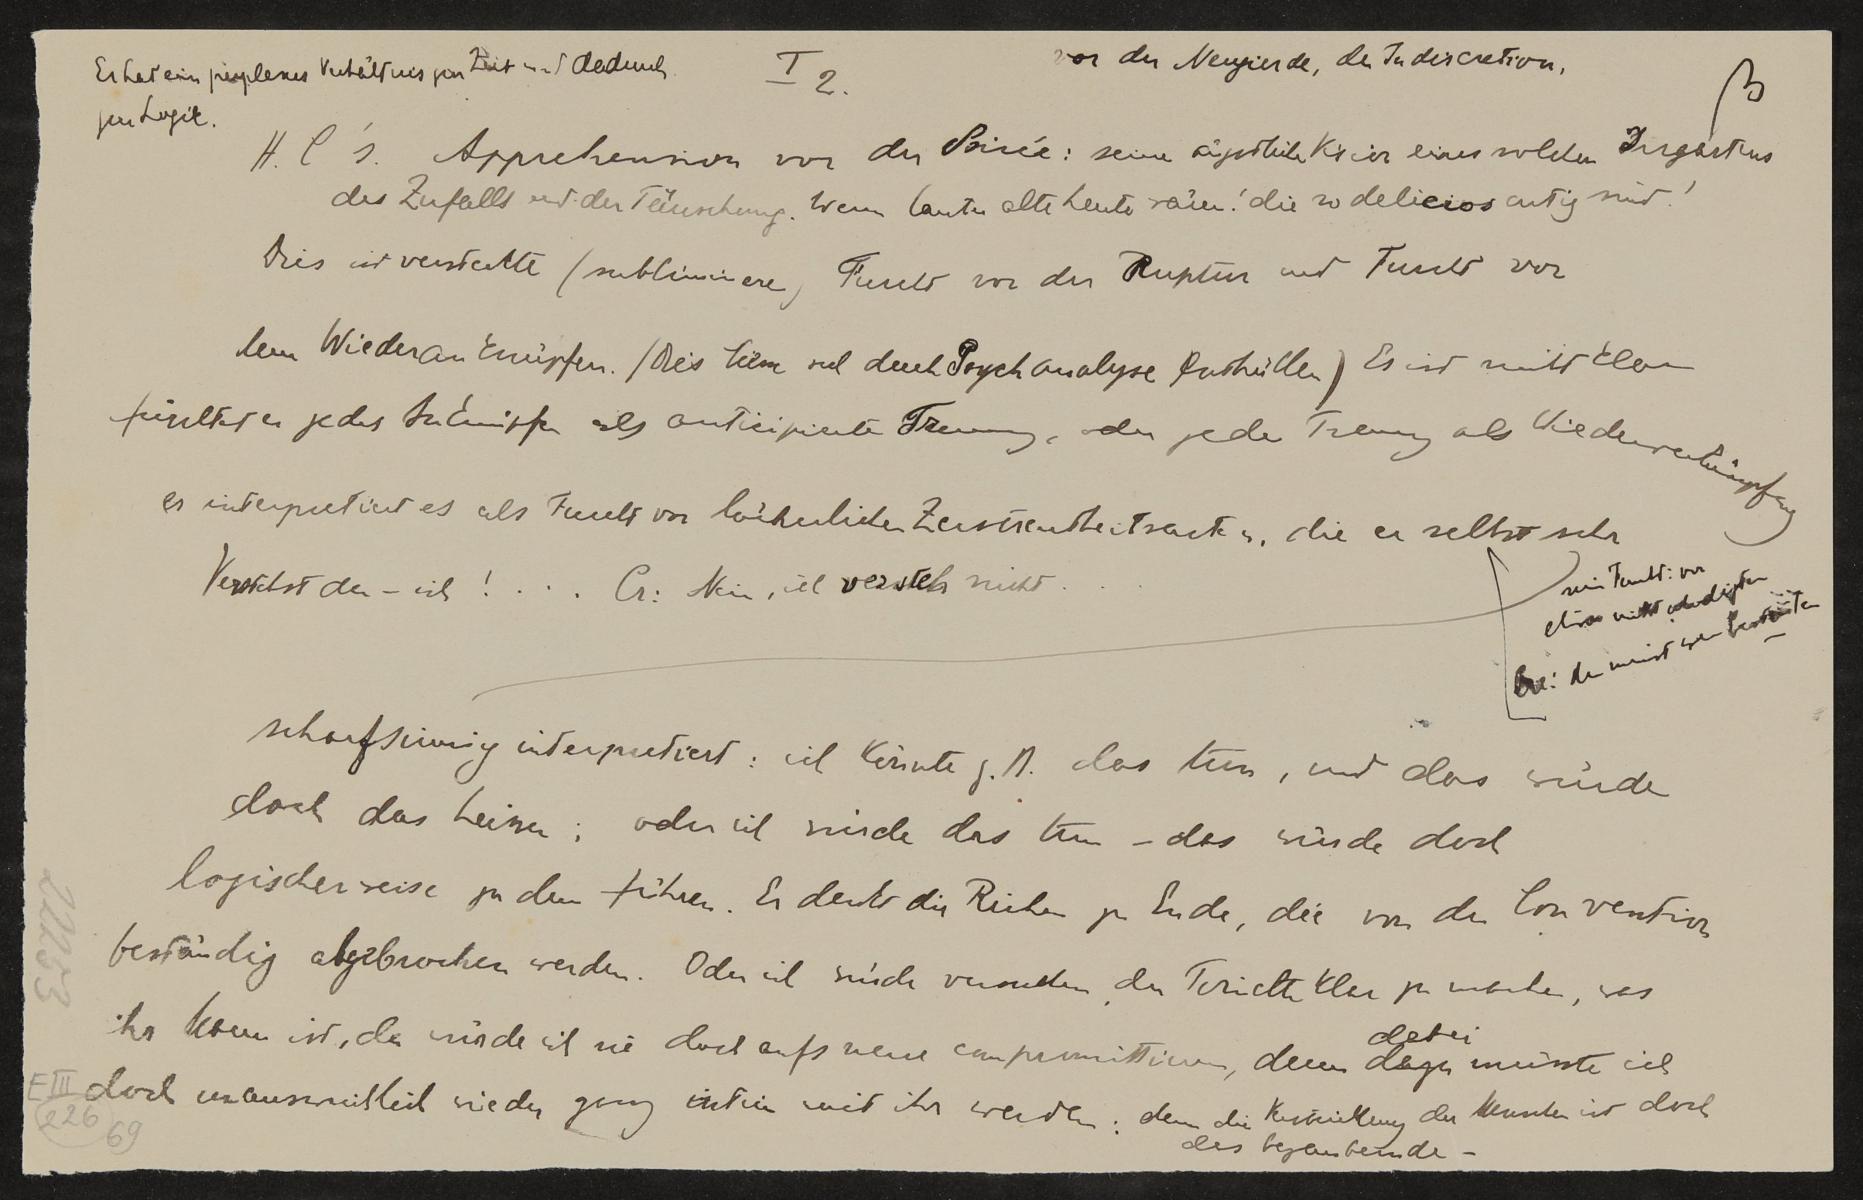 Er hat ein perplexes Verhältnis zur Zeit und dadurch
zur Logik.
I 2.
vor der Neugierde, der Indiscretion,
β
H. C's. Apprehension vor der Soirée: seine ängstliche Vision eines solchen Irrgartens
des Zufalls und der Täuschung. Wenn lauter alte Leute wären! die so delicios artig sind!
Dies ist versteckte (subliminare) Furcht vor der Ruptur und Furcht vor
dem Wiederanknüpfen. (Dies liesse sich durch Psychanalyse enthüllen) Es ist nicht klar
fürchtet er jedes Anknüpfen als anticipierte Trennung, oder jede Trennung als Wiederverknüpfung
er interpretiert es als Furcht vor lächerlichen Zerstreutheitsacten, die er selbst sehr
Verstehst du – ich! . . . Cr: Nein, ich versteh nicht . . .
sein Furcht: vor
etwas nicht
du meinst
scharfsinnig interpretiert: ich könnte z. B. das tun, und das würde
doch das heissen; oder ich würde das tun – das würde doch
logischerweise zu dem führen. Er denkt die Reihen zu Ende, die von der Convention
beständig abgebrochen werden. Oder ich würde versuchen, der Toinette klar zu machen, was
ihr Mann ist, da würde ich sie doch aufs neue compromittieren, denn dazu müsste ich
dabei
doch unausweichlich wieder ganz intim mit ihr werden: denn die Verstrickung der Menschen ist doch
das bezaubernde –
22253
E III
226
69